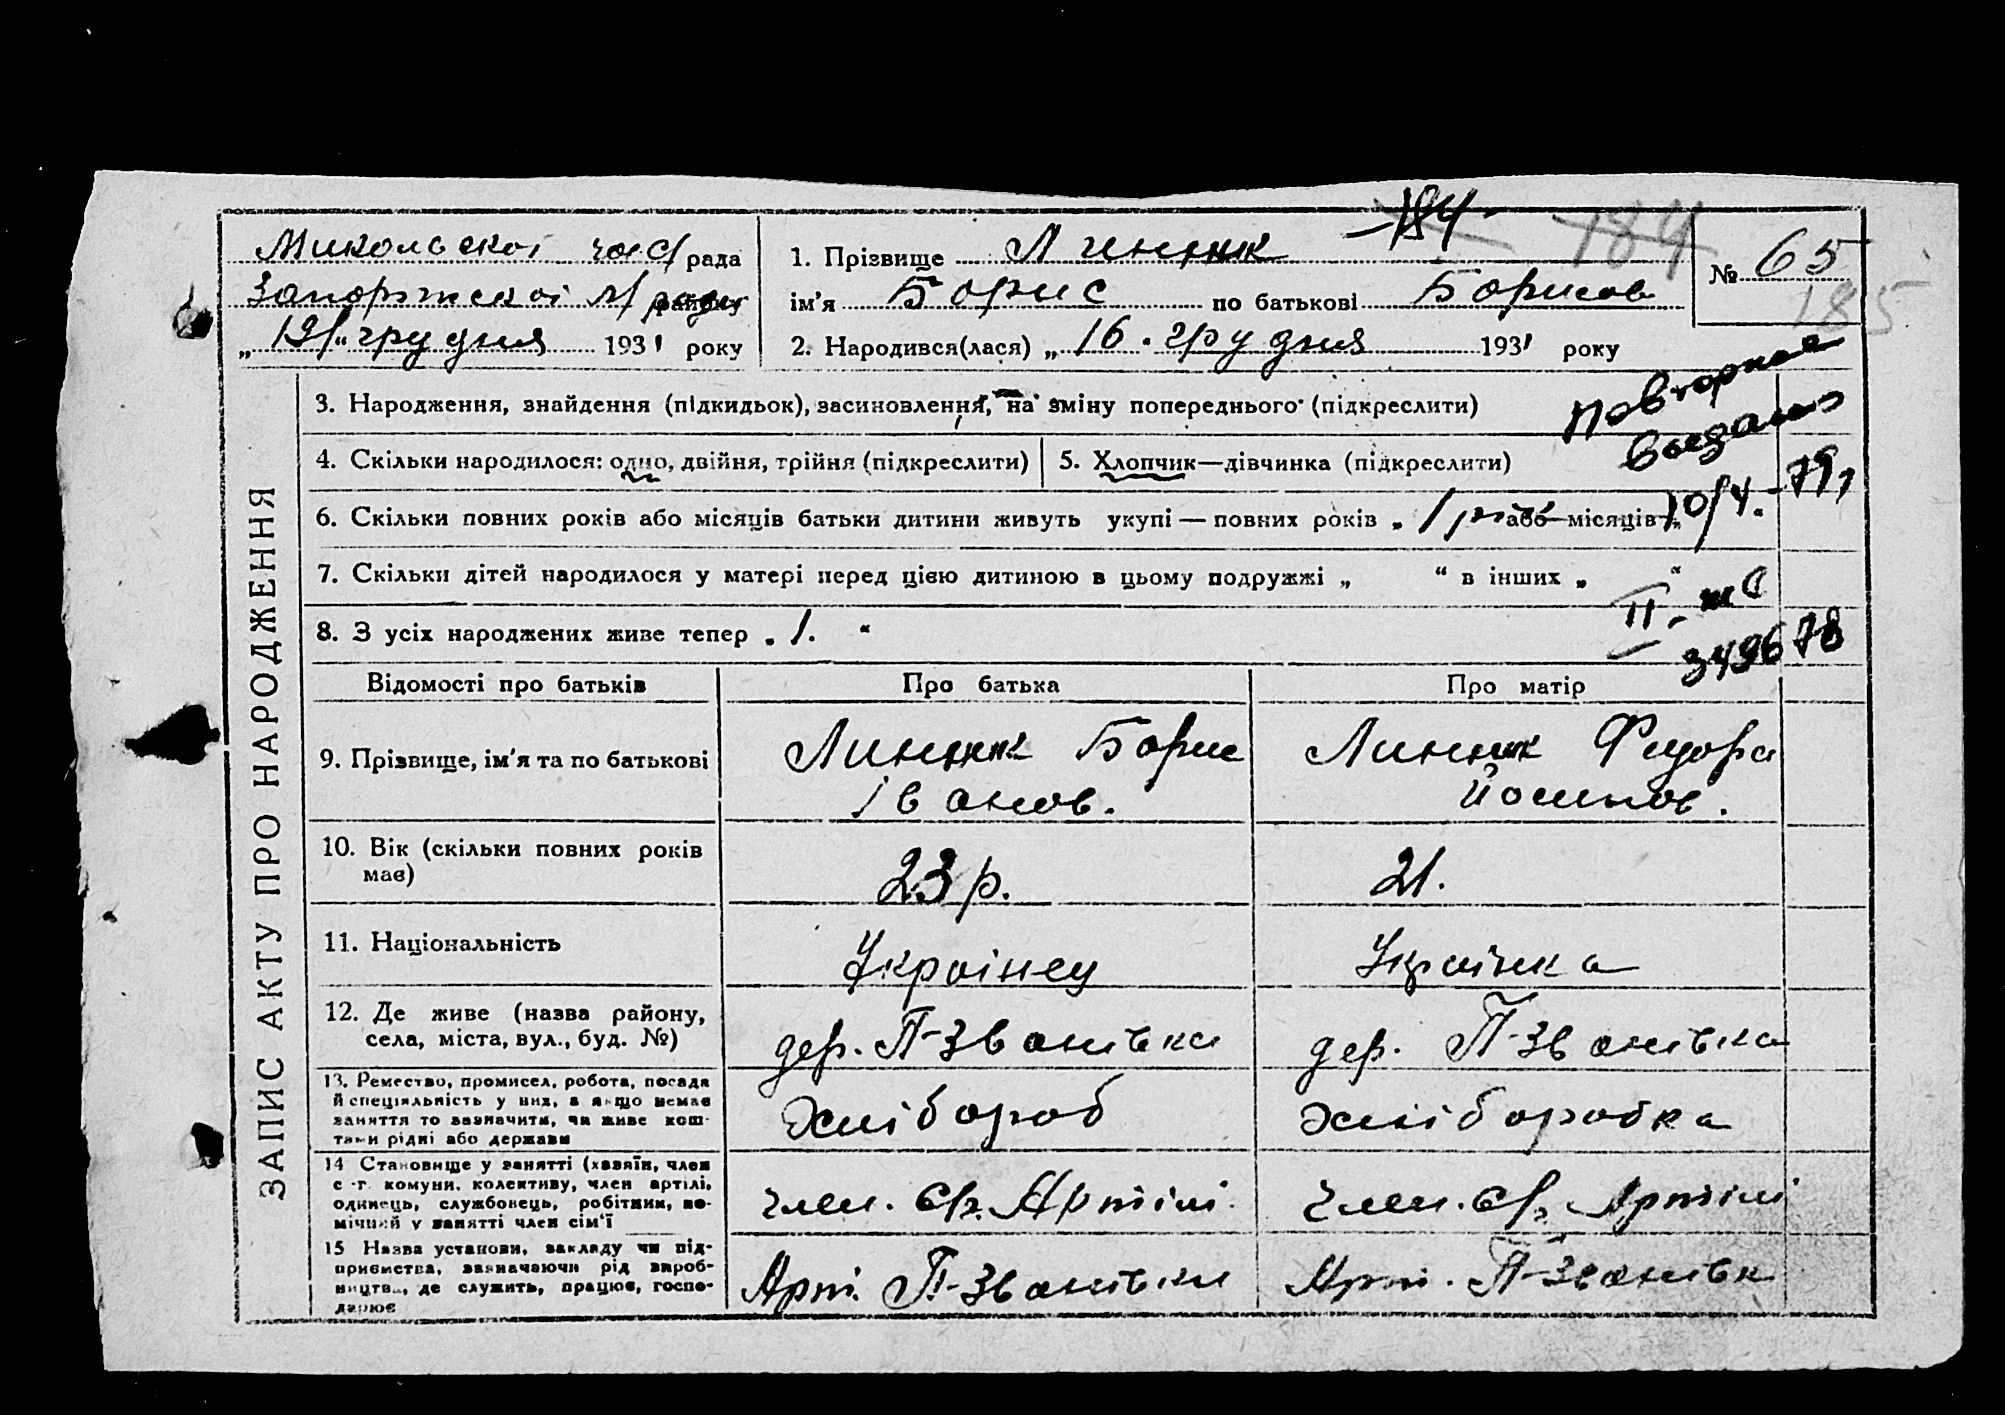 Микольської рада
Запоріжської м/ради району
„19“ грудня 1931 року
1. Прізвище Линник
ім'я Борис по батькові Борисов
2. Народився(лася) „16. грудня 1931 року
184
184
№ 65
185
ЗАПИС АКТУ ПРО НАРОДЖЕННЯ
3. Народження, знайдення (підкидьок), засиновлення, на зміну попереднього (підкреслити)
Повторное
выдано
4. Скільки народилося: одно, двійня, трійня (підкреслити)
5. Хлопчик—дівчинка (підкреслити)
10/4-79
6. Скільки повних років або місяців батьки дитини живуть укупі — повних років „ 1 рік або місяців „
7. Скільки дітей народилося у матері перед цією дитиною в цьому подружжі „ “ в інших „ “
II-
349678
8. З усіх народжених живе тепер „ 1. “
Відомості про батьків Про батька Про матір
9. Прізвище, ім'я та по батькові
Линник Борис
Іванов.
Линник Федора
Йосипов.
10. Вік (скільки повних років
має)
23 р.
21.
11. Національність
Українец
Українка
12. Де живе (назва району,
села, міста, вул., буд. №)
дер. П-Званівка
дер. П-Званівка
13. Ремество, промисел, робота, посада
й спеціяльність у них, а якщо немає
заняття то зазначити, чи живе кош-
тами рідні або держави
Хлібороб
Хліборобка
14 Становище у занятті (хазяїн, член
с.-г. комуни, колективу, член артілі,
одинець, службовець, робітник, по-
мічний у занятті член сім'ї
член. с/г. Артілі
член. с/г. Артілі
15 Назва установи, закладу чи під-
приємства, зазначаючи рід вироб-
ництва, де служить, працює, госпо-
дарює
Арт. П-Званівки
Арт. П-Званівк